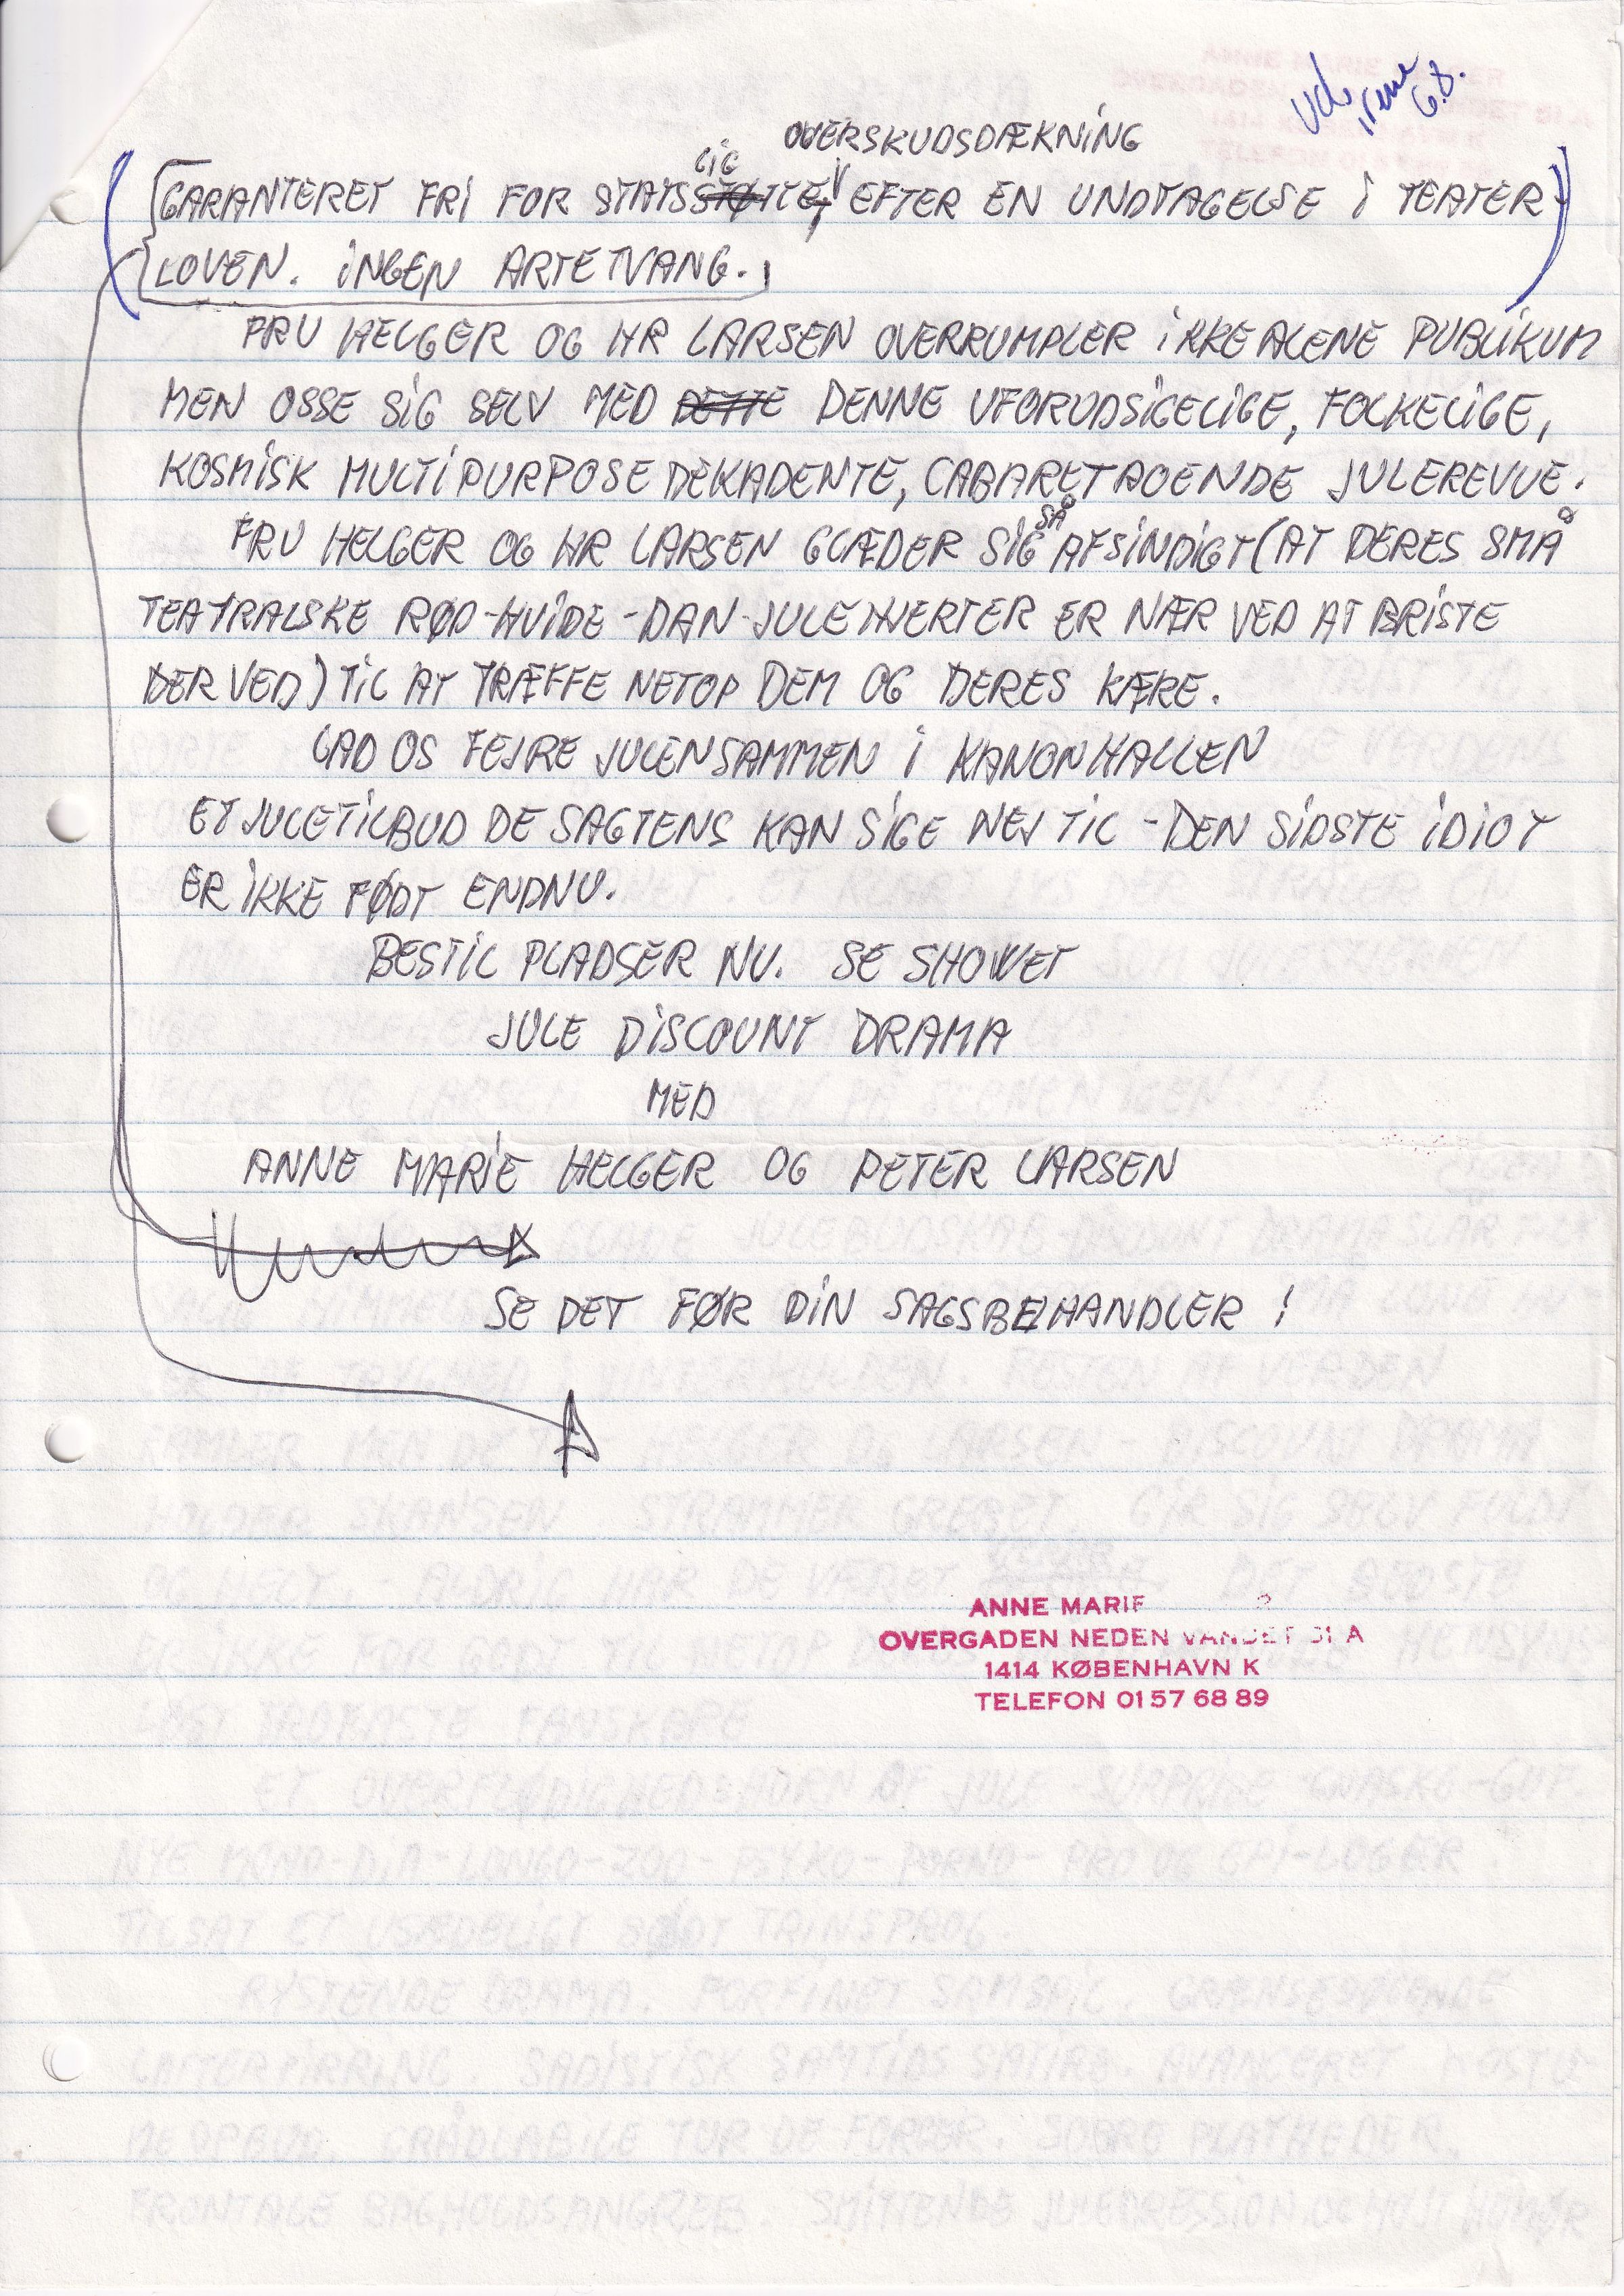 OVERSKUDSDÆKNING
LIG
GARANTERET FRI FOR STATSSTØTTET EFTER EN UNDTAGELSE I TEATER-
LOVEN. INGEN ARTETVANG.
FRU HELGER OG HR LARSEN OVERRUMPLER IKKE ALENE PUBLIKUM
MEN OSSE SIG SELV MED DETTE DENNE UFORUDSIGELIGE, FOLKELIGE,
KOSMISK MULTIPURPOSE DEKADENTE, CABARETAGENDE JULEREVUE.
SÅ
FRU HELGER OG HR LARSEN GLÆDER SIG AFSINDIGT (AT DERES SMÅ
TEATRALSKE RØD-HVIDE-DAN-JULEHJERTER ER NÆR VED AT BRISTE
DERVED) TIL AT TRÆFFE NETOP DEM OG DERES KÆRE.
LAD OS FEJRE JULEN SAMMEN I KANONHALLEN
ET JULETILBUD DE SAGTENS KAN SIGE NEJ TIL - DEN SIDSTE IDIOT
ER IKKE FØDT ENDNU.
BESTIL PLADSER NU. SE SHOWET
JULE DISCOUNT DRAMA
MED
ANNE MARIE HELGER OG PETER LARSEN
SE DET FØR DIN SAGSBEHANDLER !
ANNE MARIE
OVERGADEN NEDEN VANDET 51 A
1414 KØBENHAVN K
TELEFON 01 57 68 89